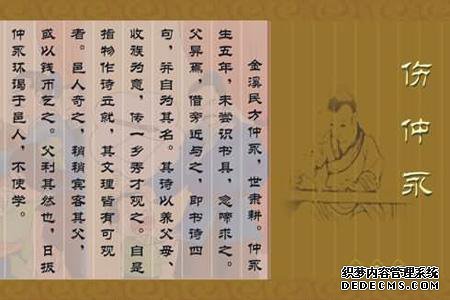 伤仲永
金溪民方仲永，世隶耕。仲永
生五年，未尝识书具，忽啼求之。
父异焉，借旁近与之，即书诗四
句，并自为其名。其诗以养父母、
收族为意，传一乡秀才观之。自是
指物作诗立就，其文理皆有可观
者。邑人奇之，稍稍宾客其父，
或以钱币乞之。父利其然也，日扳
仲永环谒于邑人，不使学。
织梦内容管理系统
DEDECMS.COM